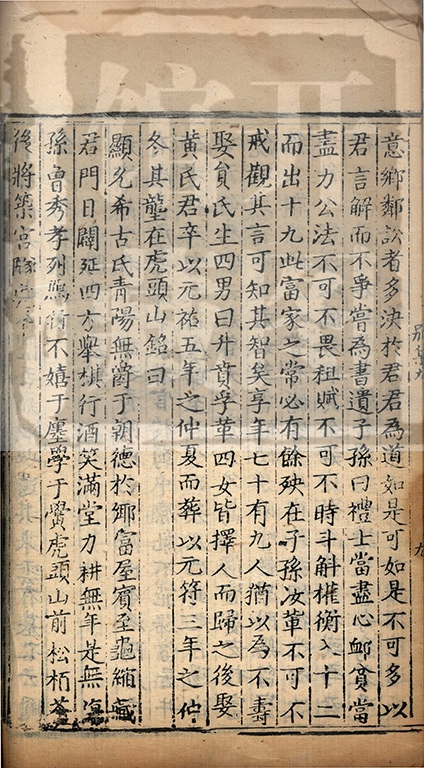 意鄉鄰訟者多決於君君爲道如是可如是不可多以
君言解而不爭嘗為書遺子孫曰禮士當盡心卹貧當
盡力公法不可不畏租賦不可不時斗斛權衡入十二
而出十九此富家之常必有餘殃在子孫汝輩不可不
戒觀其言可知其智矣享年七十有九人猶以為不壽
娶貟氏生四男曰升賁孚革四女皆擇人而歸之後娶
黃氏君卒以元祐五年之仲夏而葬以元符三年之仲
冬其壟在虎頭山銘曰
顯允希古氏青陽無爵于朝德於鄉富屋賓至龜縮藏
君門日闢延四方舉棋行酒笑滿堂力耕無年是無
孫曾秀孝列鴈行不嬉于廛學于黌虎頭山前松栢蒼
後將築宮